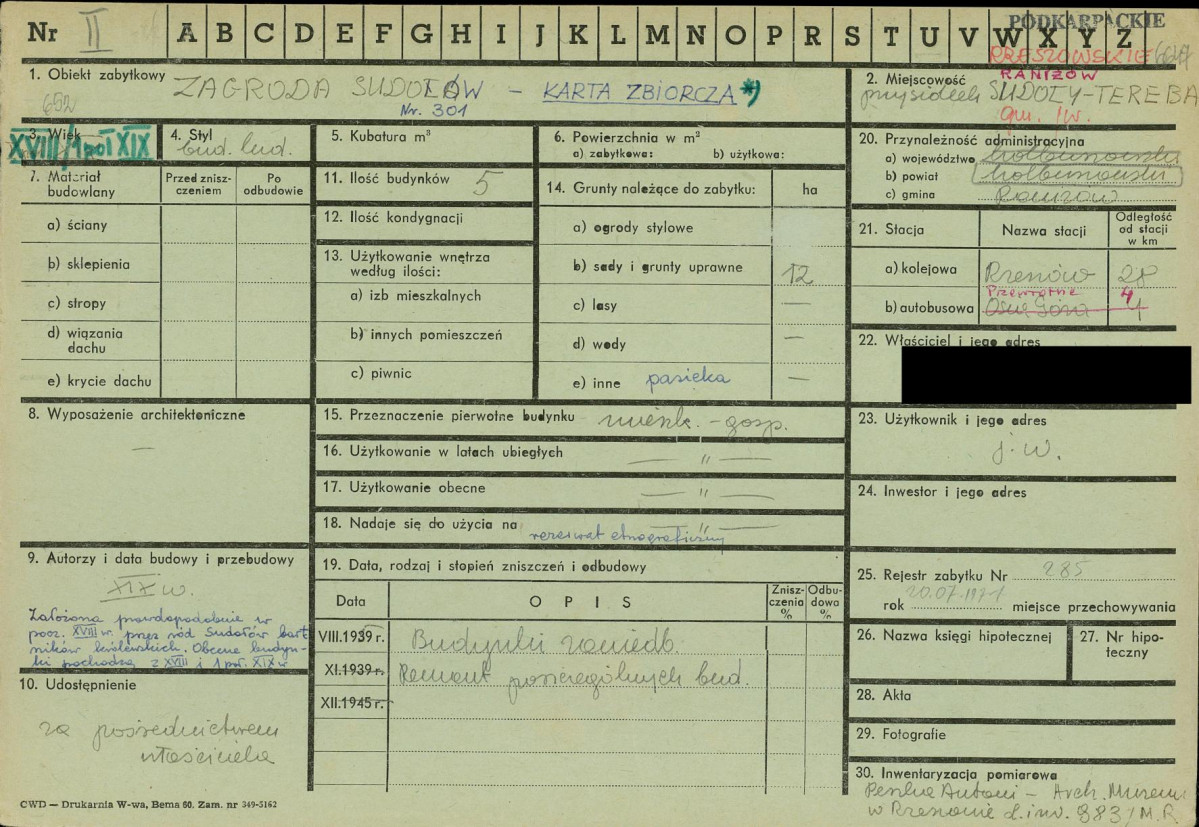 Nr II A B C D E F G H I J K L M N O P R S T U V W X Y Z
PODKARPACKIE
RZESZOWSKIE
1. Obiekt zabytkowy ZAGRODA SUDOŁÓW – KARTA ZBIORCZA *)
652
Nr. 301
2. Miejscowość RANIŻÓW
przysiółek SUDOŁY-TEREBA
gm. jw.
3. Wiek
XVIII/1 poł XIX
4. Styl
bud. lud.
5. Kubatura m³
6. Powierzchnia w m²
a) zabytkowa: b) użytkowa:
7. Materiał budowlany
Przed znisz-
czeniem
Po
odbudowie
a) ściany
b) sklepienia
c) stropy
d) wiązania
dachu
e) krycie dachu
8. Wyposażenie architektoniczne
—
9. Autorzy i data budowy i przebudowy
XIX w.
Założona prawdopodobnie w
pocz. XVIII w. przez ród Sudołów bart
ników królewskich. Obecne budyn-
ki pochodzą z XVIII i 1 poł. XIX w
10. Udostępnienie
za pośrednictwem
właściciela
11. Ilość budynków 5
12. Ilość kondygnacji
13. Użytkowanie wnętrza
według ilości:
a) izb mieszkalnych
b) innych pomieszczeń
c) piwnic
14. Grunty należące do zabytku: ha
a) ogrody stylowe
b) sady i grunty uprawne 12
c) lasy —
d) wody —
e) inne pasieka —
15. Przeznaczenie pierwotne budynku mieszk. - gosp.
16. Użytkowanie w latach ubiegłych — " —
17. Użytkowanie obecne — " —
18. Nadaje się do użycia na — " —
rezerwat etnograficzny
19. Data, rodzaj i stopień zniszczeń i odbudowy
Data OPIS Znisz-
czenia
% Odbu-
dowa
%
VIII.1939 r. Budynki zaniedb.
XI.1939 r. Remont poszczególnych bud.
XII.1945 r.
20. Przynależność administracyjna
a) województwo kolbuszowska
b) powiat kolbuszowski
c) gmina Raniżów
21. Stacja Nazwa stacji Odległość
od stacji
w km
a) kolejowa Rzeszów 28
Przewrotne 4
b) autobusowa Osia Góra 4
22. Właściciel i jego adres
23. Użytkownik i jego adres
j. w.
24. Inwestor i jego adres
25. Rejestr zabytku Nr 285
rok 20.07.1971 miejsce przechowywania
26. Nazwa księgi hipotecznej
27. Nr hipo-
teczny
28. Akta
29. Fotografie
30. Inwentaryzacja pomiarowa
Peszka Antoni - Arch. Muzeum
w Rzeszowie L. inw. 983/M.R.
CWD — Drukarnia W-wa, Bema 60. Zam. nr 349-5162